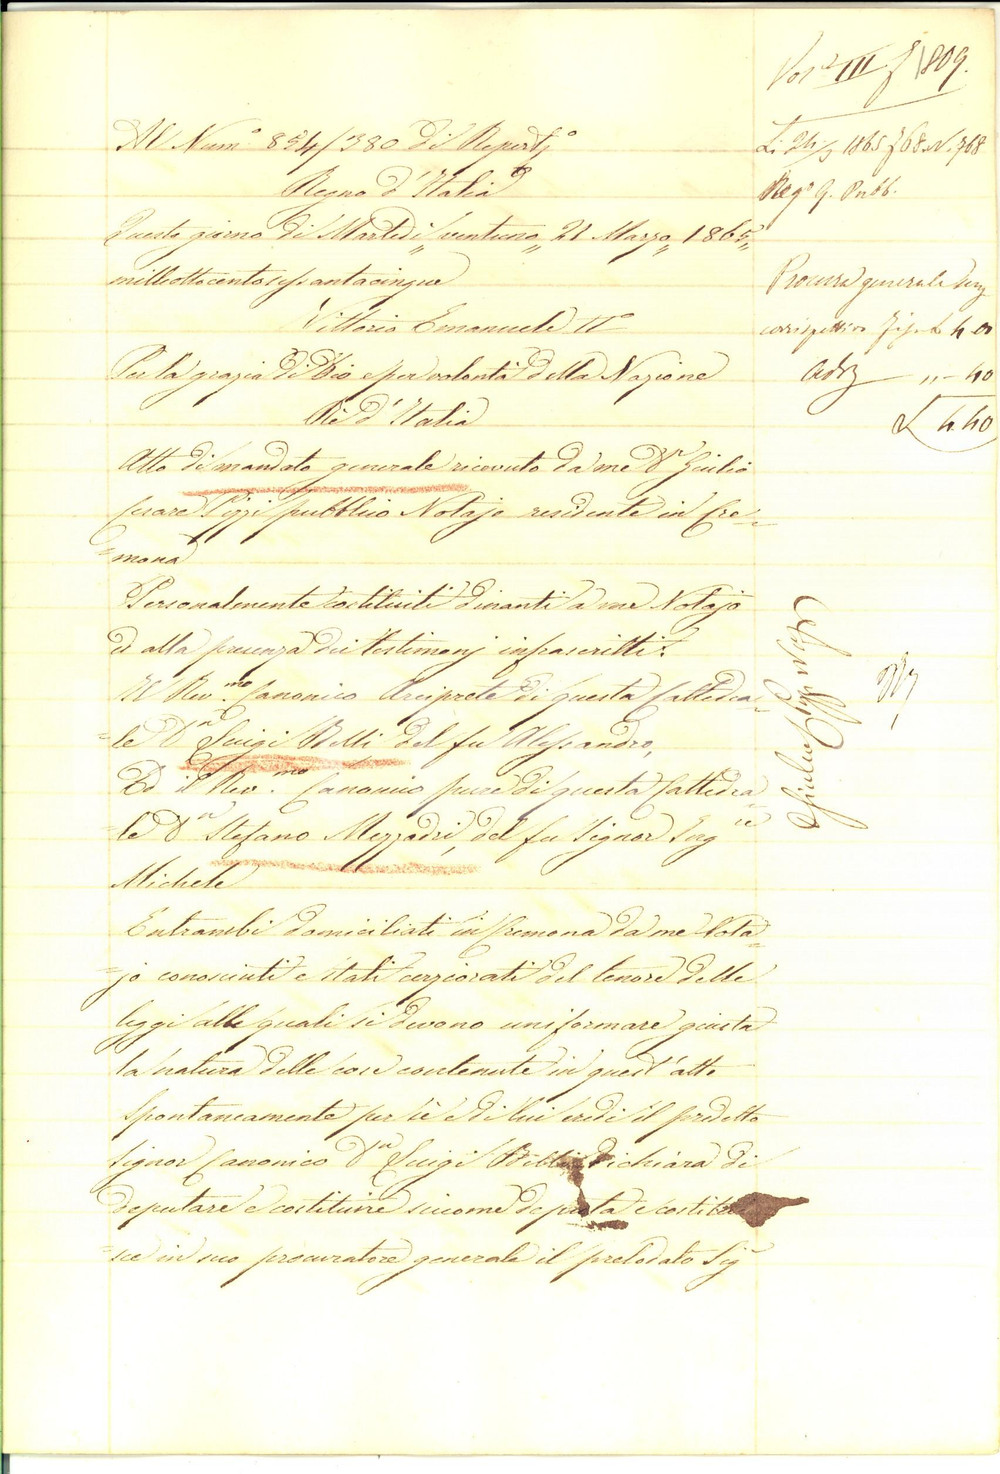 Vol.e III f 1809.
Li 24/3 1865 f 68 N. 768
Reg.o 9. Pubb.
Al Num.o 854/380 di Repert.o
Regno d'Italia
Questo giorno di Martedi „ventuno„ 21 Marzo„ 1865„
milleottocentosessantacinque
Vittorio Emanuele II.o
Per la grazia di Dio e per volontà della Nazione
Rè d'Italia
Procura generale senza
corrispettivo L 4. 00
Add.e „ - 40
L 4. 40
Atto di mandato generale ricevuto da me D.r Giulio
Cesare Pizzi pubblico Notajo residente in Cre=
=mona
Personalmente costituiti dinanti a me Notajo
ed alla presenza dei testimonj infrascritti.
Il Rev.mo Canonico Arciprete di questa Cattedra=
=le D.n Luigi Belli del fu Alessandro,
Ed il Rev.mo Canonico pure di questa Cattedra=
=le D.n Stefano Mezzadri, del fu Signor Ing.re
Michele
Entrambi domiciliati in Cremona da me Nota=
=jo conosciuti e stati cerziorati del tenore delle
leggi alle quali si devono uniformare giusta
la natura delle cose contenute in quest'atto
Spontaneamente per sè e di lui eredi il predetto
Signor Canonico D.n Luigi Belli dichiara di
deputare e costituire siccome deputa e costitui=
=sce in suo procuratore generale il prelodato Sig.r